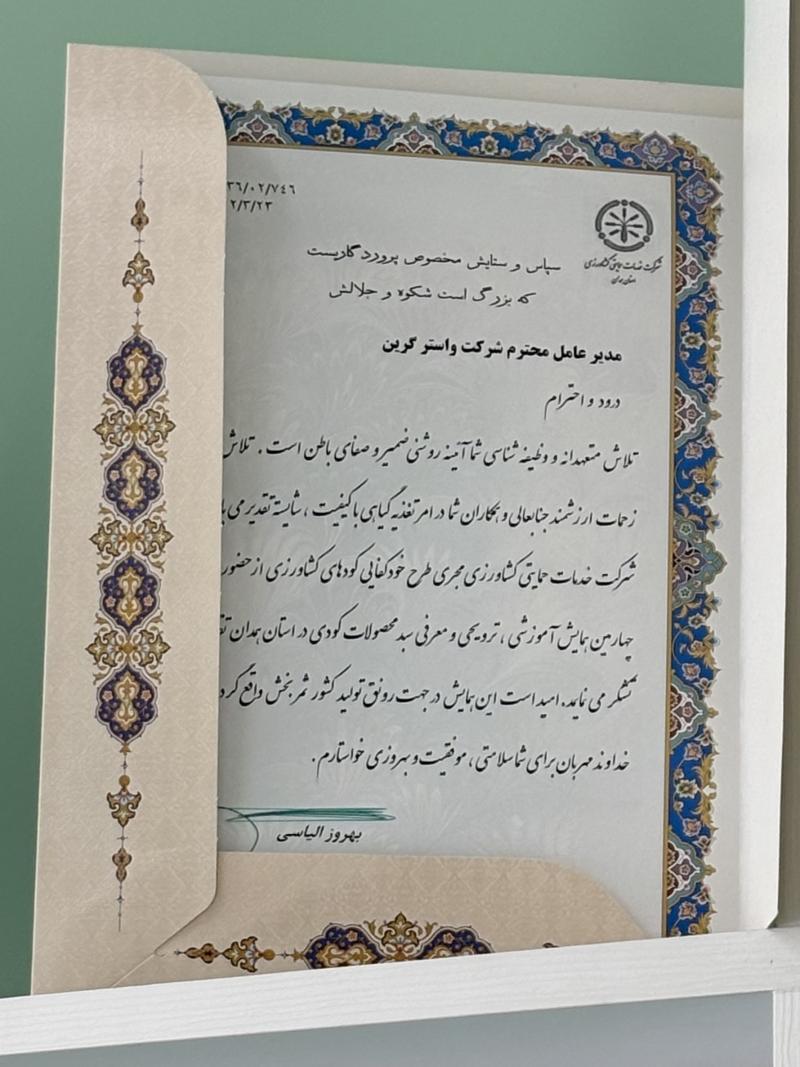 ۳٦/۰۲/۷٤٦
۲/۳/۲۳
شرکت خدمات حمایتی کشاورزی
استان همدان
سپاس و ستایش مخصوص پروردگاریست
که بزرگ است شکوه و جلالش
مدیر عامل محترم شرکت واستر گرین
درود و احترام
تلاش متعهدانه و وظیفه شناسی شما آئینه روشنی ضمیر و صفای باطن است . تلاش
زحمات ارزشمند جنابعالی و همکاران شما در امر تغذیه گیاهی با کیفیت ، شایسته تقدیر می
شرکت خدمات حمایتی کشاورزی مجری طرح خودکفایی کودهای کشاورزی از حضور
چهارمین همایش آموزشی ، ترویجی و معرفی سبد محصولات کودی در استان همدان
تشکر می نماید. امید است این همایش در جهت رونق تولید کشور ثمر بخش واقع گرد
خداوند مهربان برای شما سلامتی ، موفقیت و بهروزی خواستارم .
بهروز الیاسی